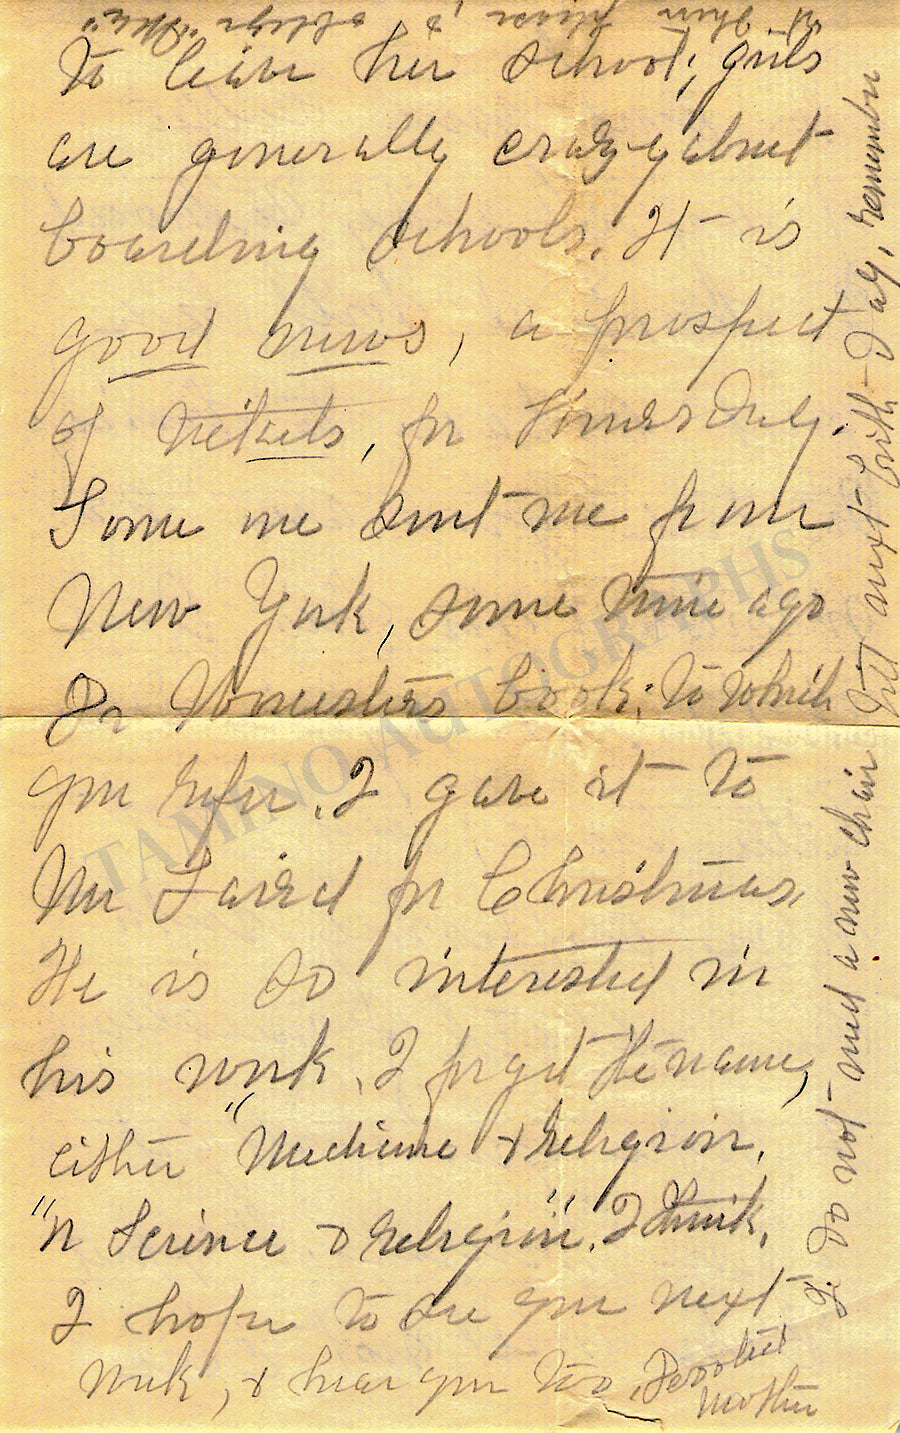 to leave her school; girls
are generally crazy about
boarding schools. It is
good news, a prospect
of tickets, for Thursday.
Some one sent me from
New York, some time ago
Dr Worcester's book; to which
you refer. I gave it to
Mr Laird for Christmas,
He is so interested in
his work. I forget the name,
either "Medicine & religion,
"or Science & religion". I think,
I hope to see you next
week, & hear you too. Devoted
Mother
I do not need a new chair
till next birth-day, remember
please
TAMINO AUTOGRAPHS